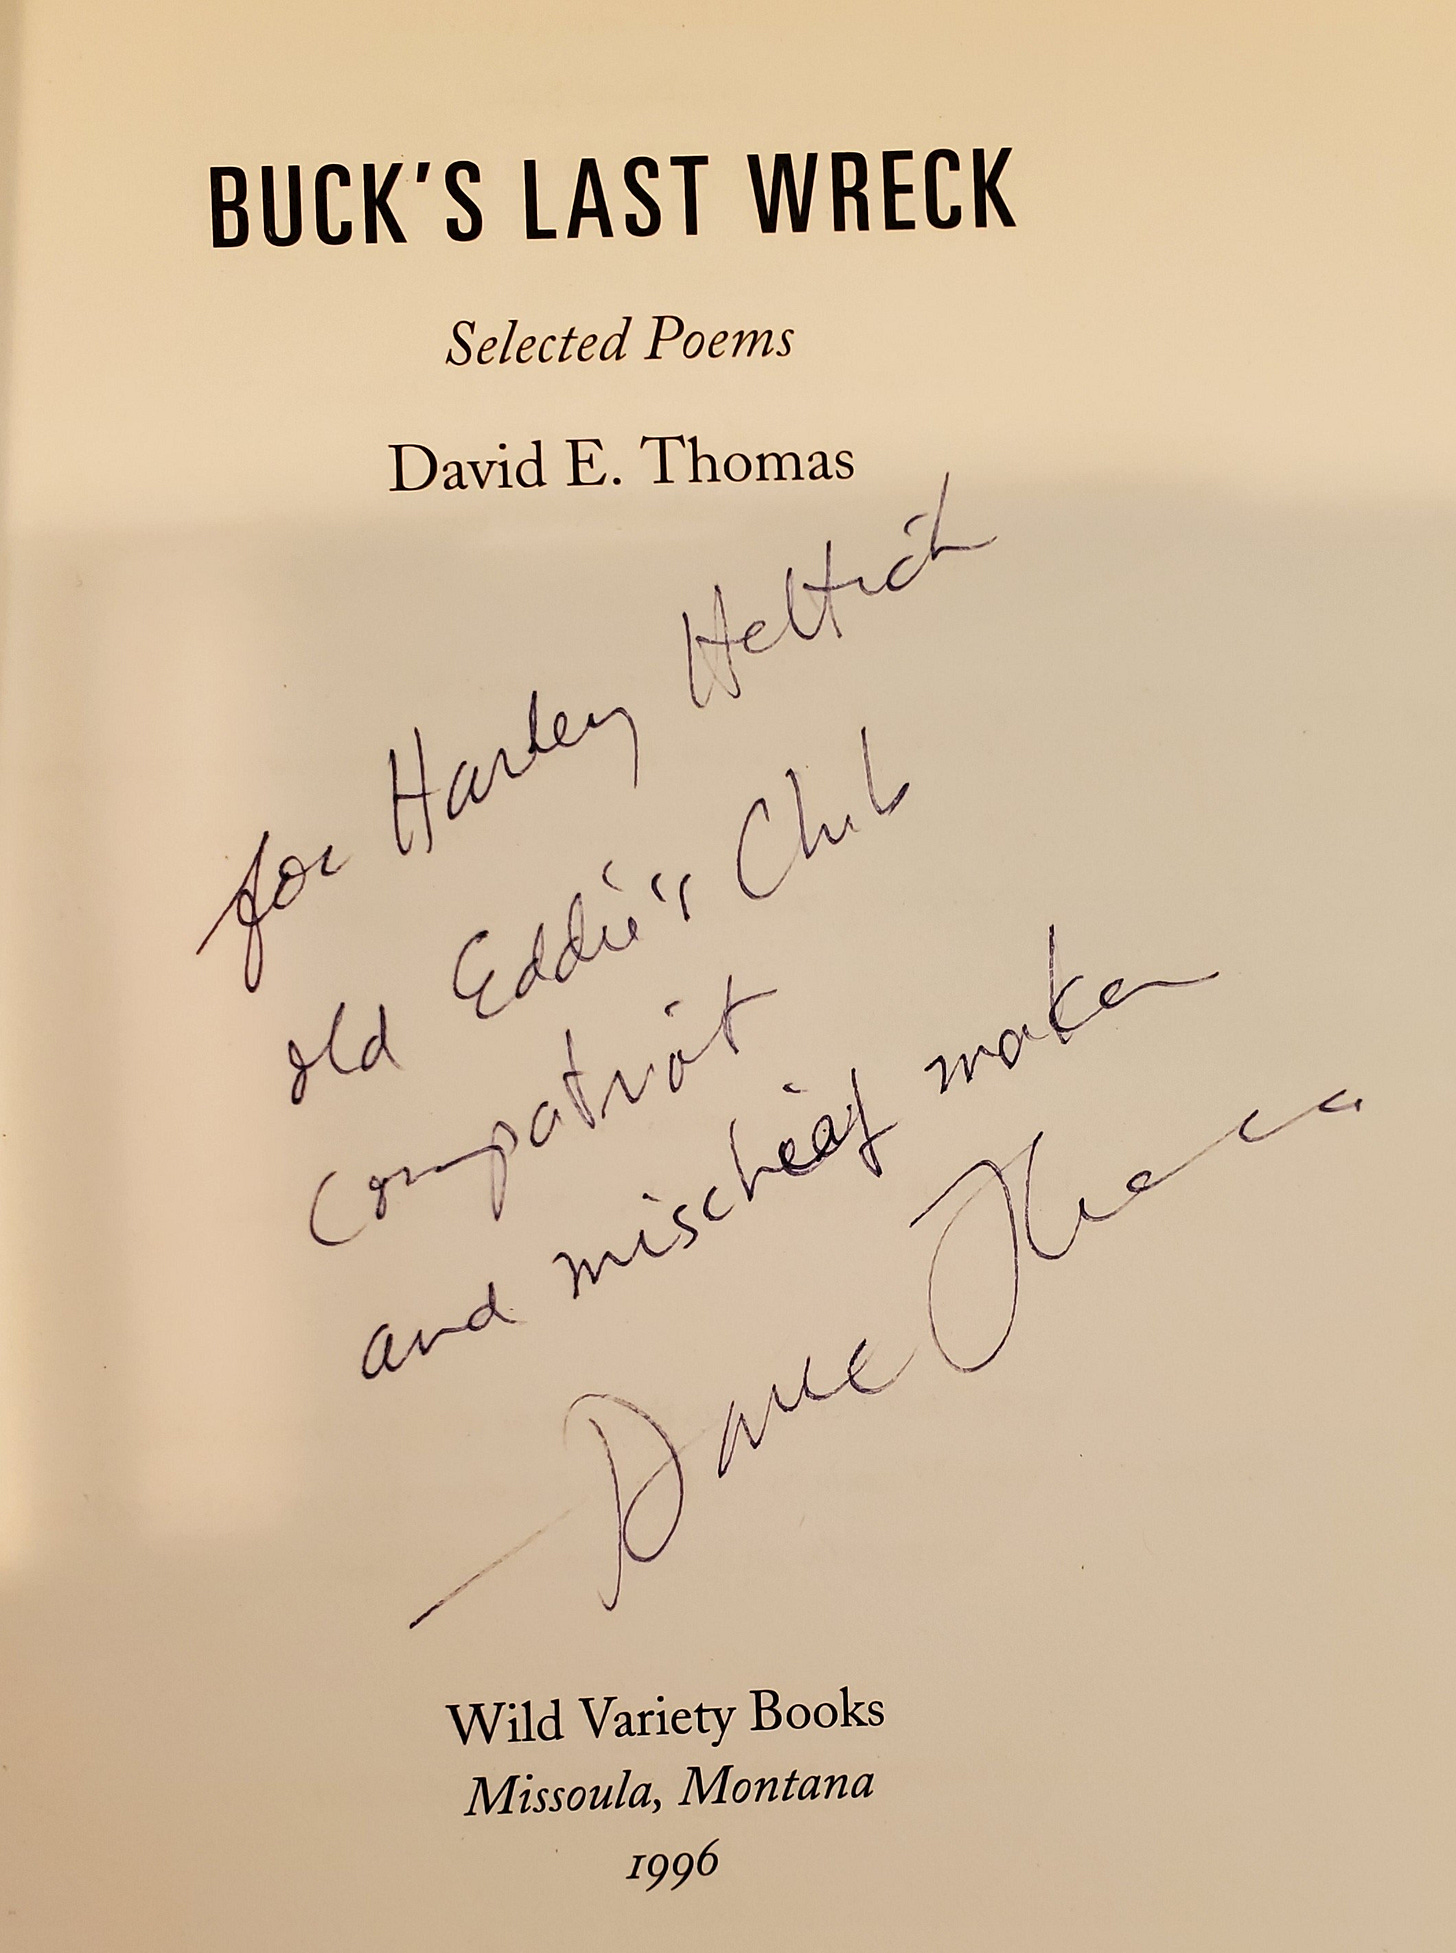 BUCK'S LAST WRECK
Selected Poems
David E. Thomas
for Harley Hettich
old Eddie's Club
compatriot
and mischief maker
— Dave Thomas
Wild Variety Books
Missoula, Montana
1996